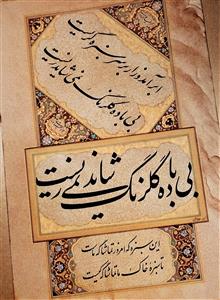 ابر آمد و زار بر سر سبزه گریست
بی باده گلرنگ نمی شاید زیست
بی باده گلرنگ نمی شاید زیست
این سبزه که امروز تماشاگه ماست
تا سبزه خاک ما تماشاگه کیست